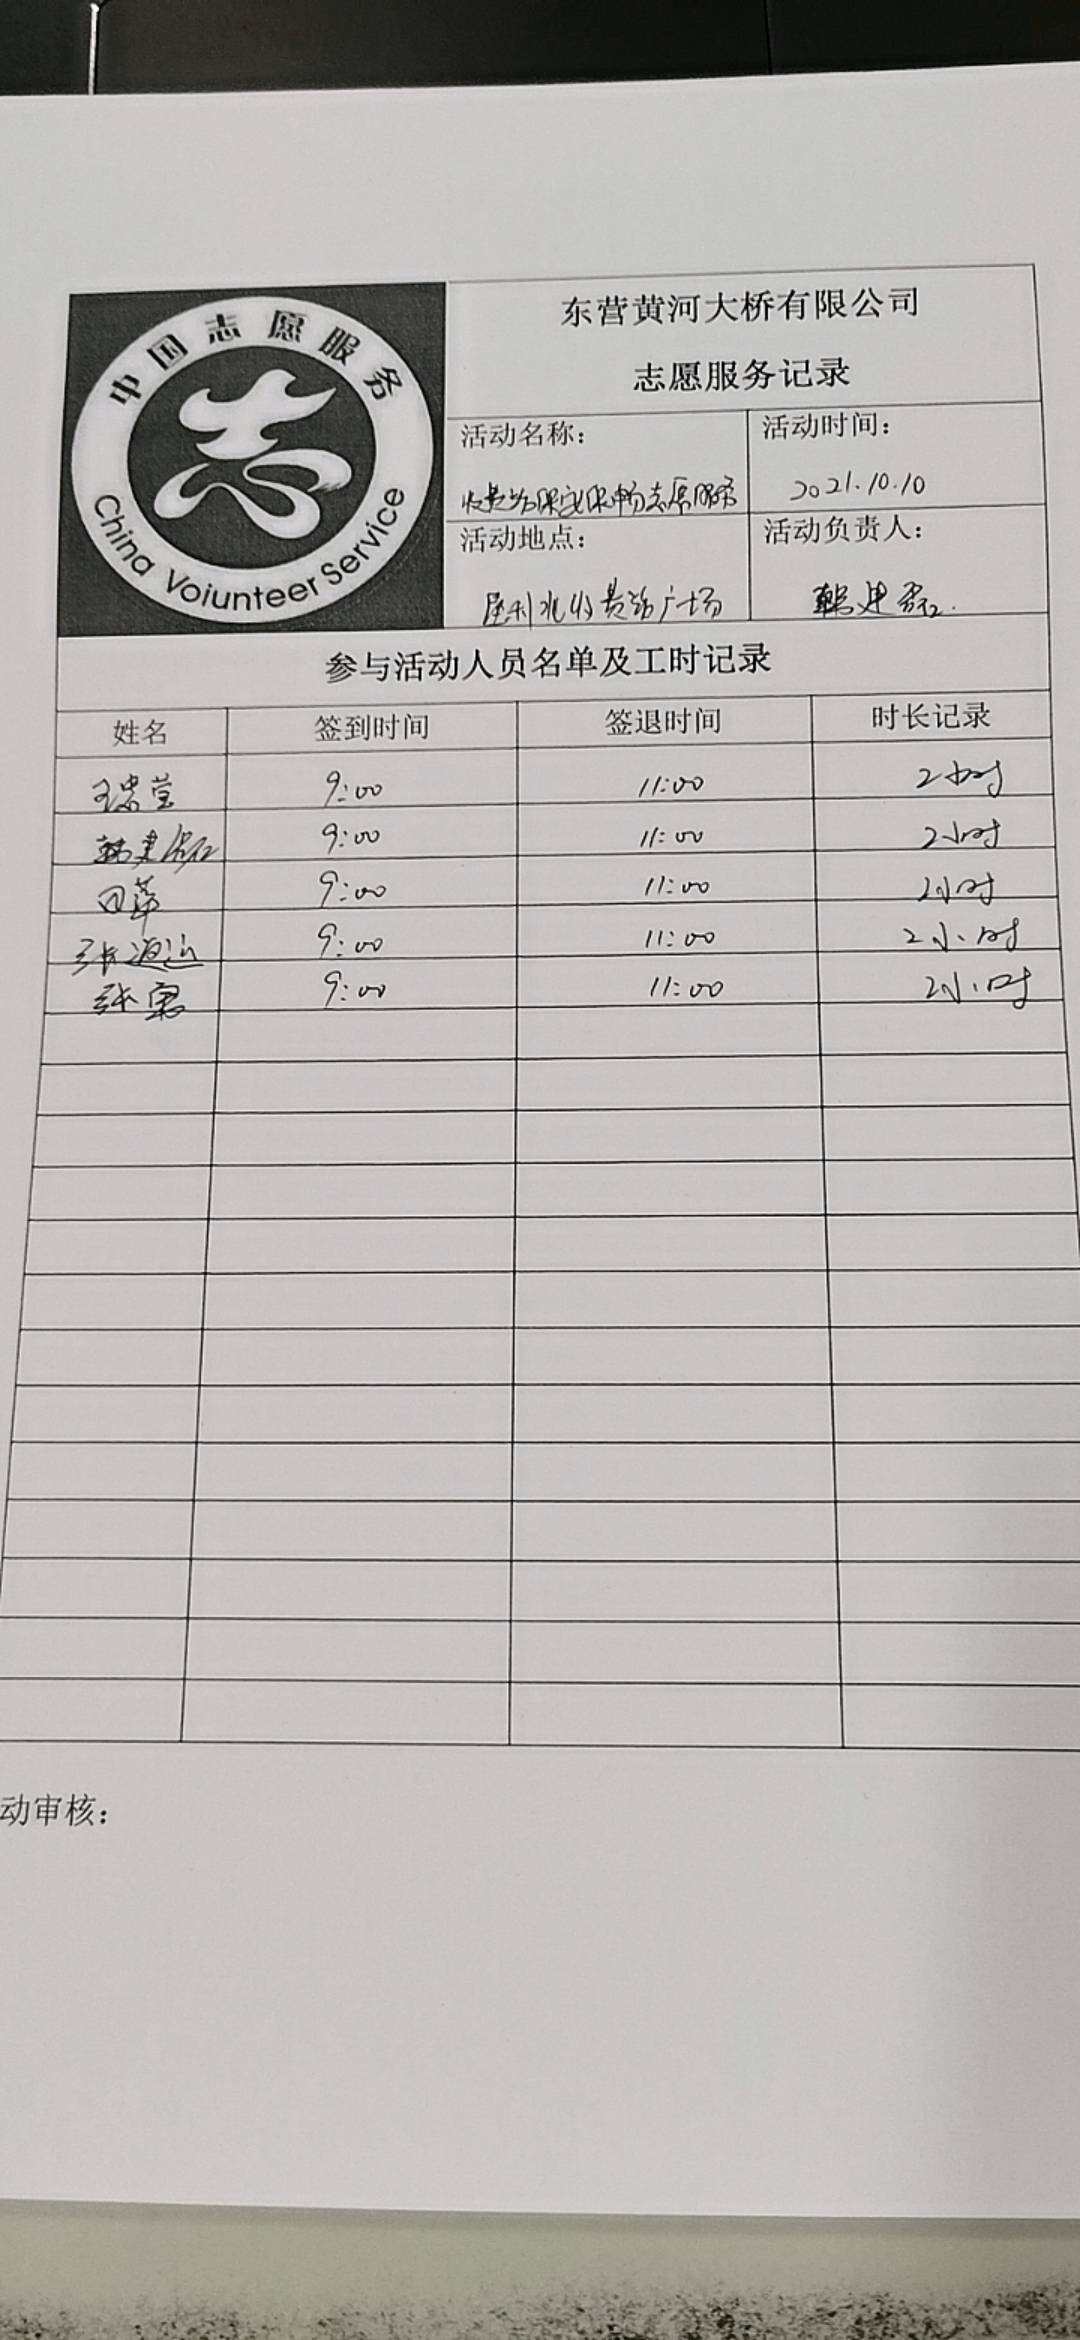 中国志愿服务
China Voiunteer Service
东营黄河大桥有限公司
志愿服务记录
活动名称： 活动时间：
收费站保安保畅志愿服务 2021.10.10
活动地点： 活动负责人：
垦利北收费站广场 韩建
参与活动人员名单及工时记录
姓名 签到时间 签退时间 时长记录
王 莹 9:00 11:00 2小时
韩建 9:00 11:00 2小时
田苹 9:00 11:00 2小时
张 9:00 11:00 2小时
张 9:00 11:00 2小时
动审核：